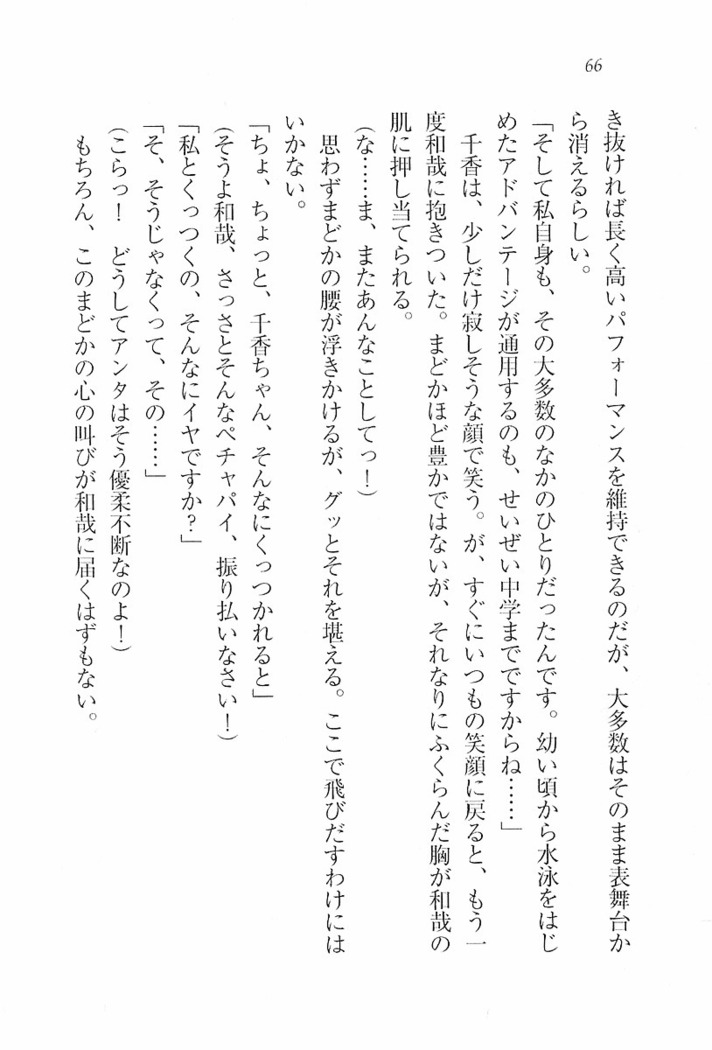 66
き抜ければ長く高いパフォーマンスを維持できるのだが、大多数はそのまま表舞台か
ら消えるらしい。
「そして私自身も、その大多数のなかのひとりだったんです。幼い頃から水泳をはじ
めたアドバンテージが通用するのも、せいぜい中学までですからね……」
　千香は、少しだけ寂しそうな顔で笑う。が、すぐにいつもの笑顔に戻ると、もう一
度和哉に抱きついた。まどかほど豊かではないが、それなりにふくらんだ胸が和哉の
肌に押し当てられる。
（な……ま、またあんなことしてっ！）
　思わずまどかの腰が浮きかけるが、グッとそれを堪える。ここで飛びだすわけには
いかない。
「ちょ、ちょっと、千香ちゃん、そんなにくっつかれると」
（そうよ和哉、さっさとそんなペチャパイ、振り払いなさい！）
「私とくっつくの、そんなにイヤですか？」
「そ、そうじゃなくって、その……」
（こらっ！　どうしてアンタはそう優柔不断なのよ！）
　もちろん、このまどかの心の叫びが和哉に届くはずもない。